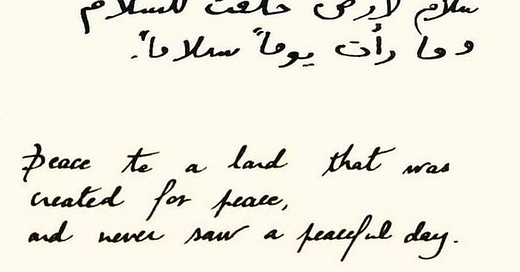 سلام لأرض خلقت للسلام
وما رأت يوماً سلاماً.
Peace to a land that was
created for peace,
and never saw a peaceful day.